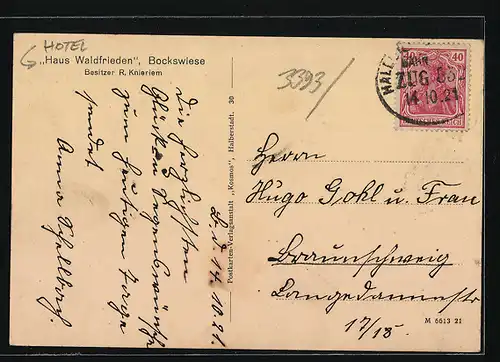 HOTEL
„Haus Waldfrieden", Bockswiese
Besitzer R. Knieriem
3393/
40 40
BAHN
ZUG 85
14.10.21
Die herzlichsten
Glück u. Segenswünsche
zum heutigen Tage
sendet
Anna
14.10.21.
Postkarten-Verlagsanstalt „Kosmos", Halberstadt. 30
Herrn
Hugo Gohl u. Frau
Braunschweig
Langedammstr
17/18
M 6613 21